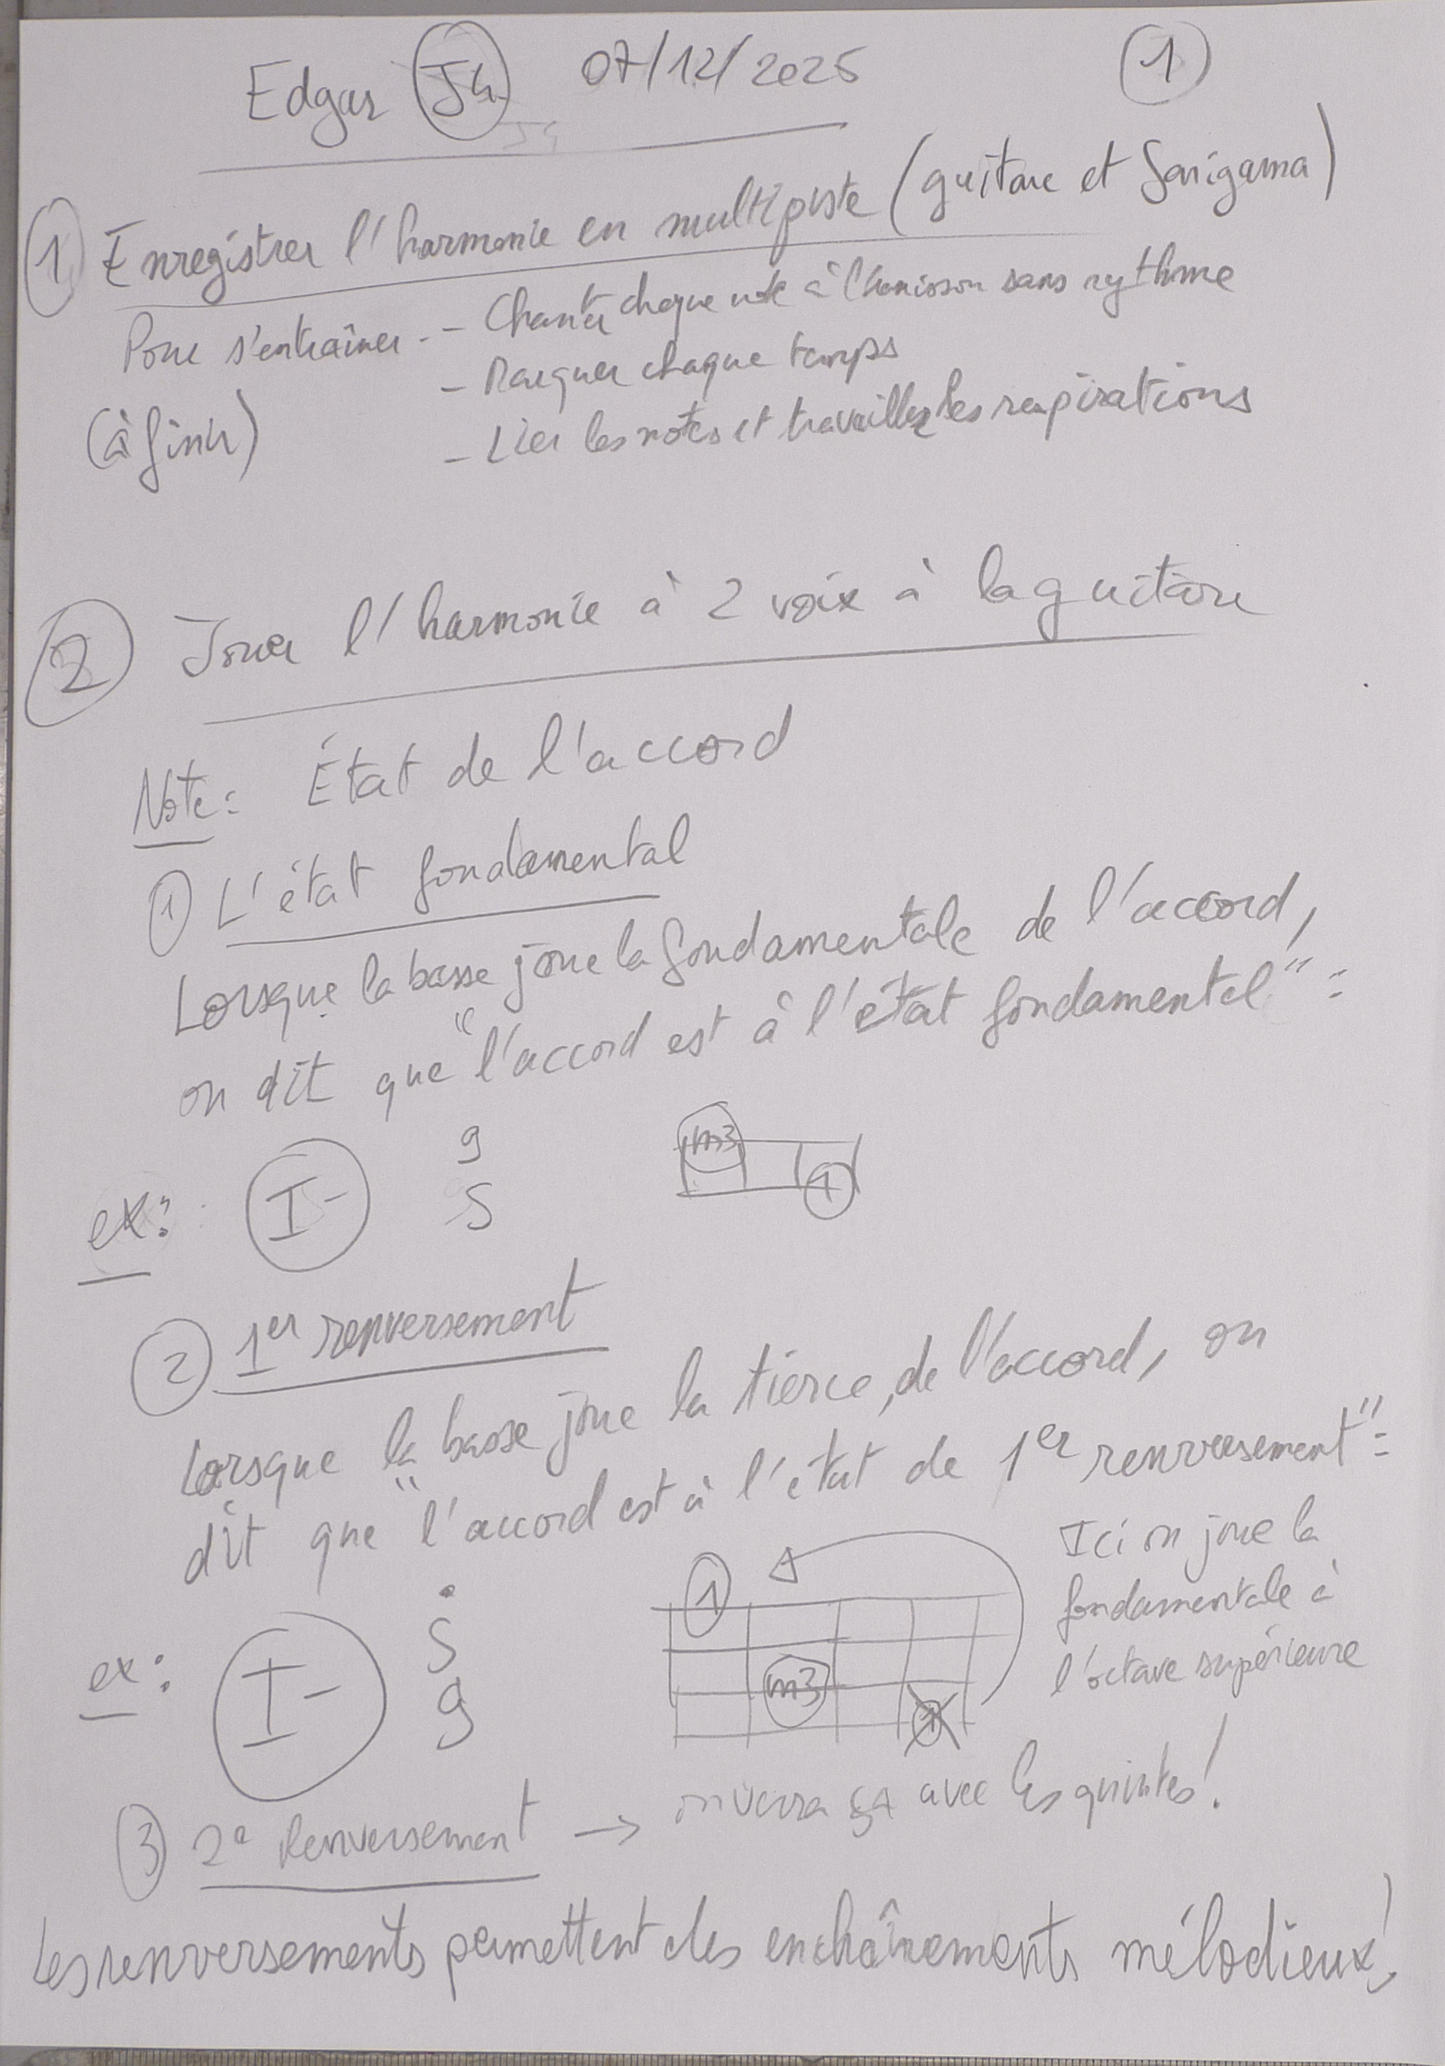 Edgar J4 07/12/2025 1
1 Enregistrer l'harmonie en multipiste (guitare et Sarigama)
Pour s'entraîner - Chanter chaque note à l'unisson sans rythme
- Marquer chaque temps
(à finir)
- Lier les notes et travailler les respirations
2 Jouer l'harmonie à 2 voix à la guitare
Note: État de l'accord
1 L'état fondamental
Lorsque la basse joue la fondamentale de l'accord,
on dit que "l'accord est à l'état fondamental" :
g m3
ex: I- S 1
2 1er renversement
Lorsque la basse joue la tierce, de l'accord, on
dit que "l'accord est à l'état de 1er renversement" :
Ici on joue la
fondamentale à
l'octave supérieure
1
Ṡ
ex: I- m3
g 1
3 2e Renversement → on verra ça avec les quintes!
Les renversements permettent des enchaînements mélodieux!